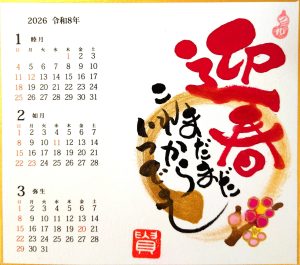 2026 令和8年
1 睦月
日 月 火 水 木 金 土
1 2 3
4 5 6 7 8 9 10
11 12 13 14 15 16 17
18 19 20 21 22 23 24
25 26 27 28 29 30 31
2 如月
日 月 火 水 木 金 土
1 2 3 4 5 6 7
8 9 10 11 12 13 14
15 16 17 18 19 20 21
22 23 24 25 26 27 28
3 弥生
日 月 火 水 木 金 土
1 2 3 4 5 6 7
8 9 10 11 12 13 14
15 16 17 18 19 20 21
22 23 24 25 26 27 28
29 30 31
迎春
まだまだ
これから
いつでも